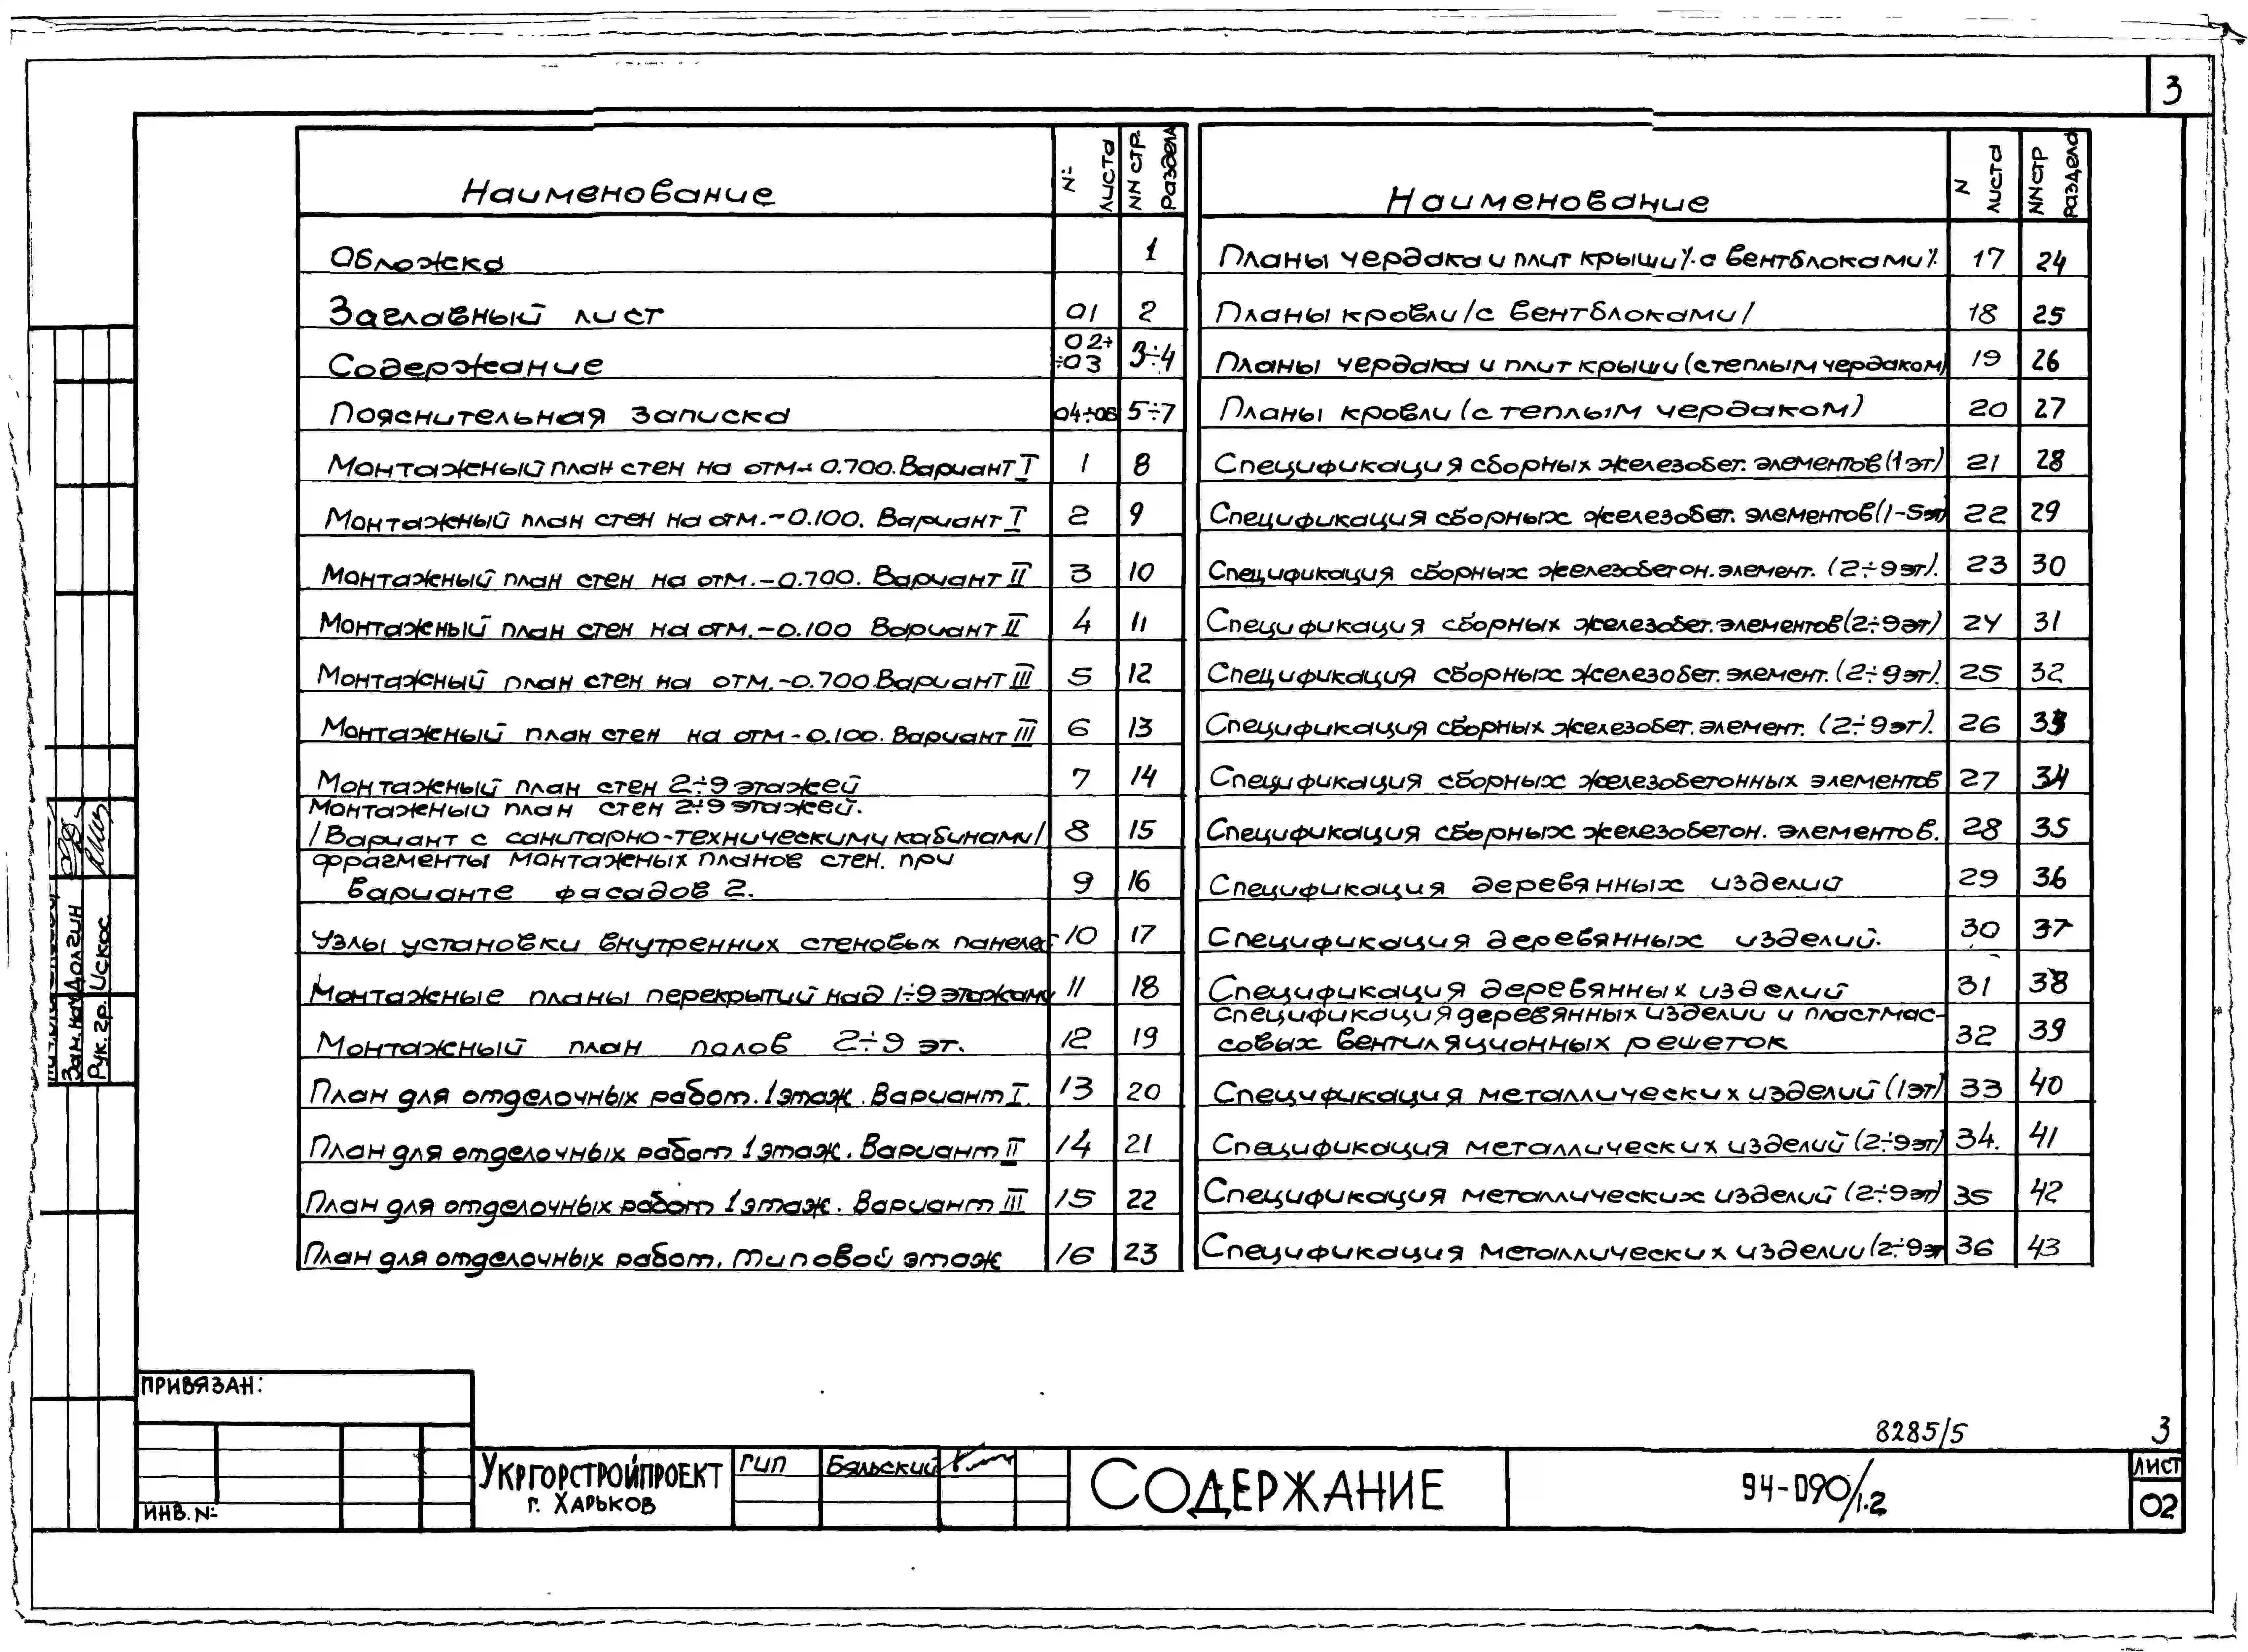 3
Наименование № листа NN стр. раздела
Обложка 1
Заглавный лист 01 2
Содержание 02÷ ÷03 3÷4
Пояснительная записка 04÷06 5÷7
Монтажный план стен на отм.- 0.700. Вариант I 1 8
Монтажный план стен на отм.-0.100. Вариант I 2 9
Монтажный план стен на отм.-0.700. Вариант II 3 10
Монтажный план стен на отм.-0.100 Вариант II 4 11
Монтажный план стен на отм.-0.700.Вариант III 5 12
Монтажный план стен на отм-0.100. Вариант III 6 13
Монтажный план стен 2÷9 этажей 7 14
Монтажный план стен 2÷9 этажей.
/Вариант с санитарно-техническими кабинами/ 8 15
Фрагменты монтажных планов стен. при
варианте фасадов 2. 9 16
Узлы установки внутренних стеновых панелей 10 17
Монтажные планы перекрытий над 1÷9 этажами 11 18
Монтажный план полов 2÷9 эт. 12 19
План для отделочных работ.1этаж.Вариант I. 13 20
План для отделочных работ 1этаж. Вариант II 14 21
План для отделочных работ 1этаж. Вариант III 15 22
План для отделочных работ. Типовой этаж 16 23
Наименование N листа NN стр раздела
Планы чердака и плит крыши /с вентблоками/. 17 24
Планы кровли /с вентблоками/ 18 25
Планы чердака и плит крыши (с теплым чердаком) 19 26
Планы кровли (с теплым чердаком) 20 27
Спецификация сборных железобет. элементов (1эт) 21 28
Спецификация сборных железобет. элементов(1-5эт) 22 29
Спецификация сборных железобетон.элемент. (2÷9эт). 23 30
Спецификация сборных железобет.элементов(2÷9эт) 24 31
Спецификация сборных железобет. элемент. (2÷9эт). 25 32
Спецификация сборных железобет. элемент. (2÷9эт). 26 33
Спецификация сборных железобетонных элементов 27 34
Спецификация сборных железобетон. элементов. 28 35
Спецификация деревянных изделий 29 36
Спецификация деревянных изделий. 30 37
Спецификация деревянных изделий 31 38
Спецификация деревянных изделий и пластмас-
совых вентиляционных решеток 32 39
Спецификация металлических изделий (1эт) 33 40
Спецификация металлических изделий (2÷9эт) 34. 41
Спецификация металлических изделий (2÷9эт) 35 42
Спецификация металлических изделий (2÷9эт 36 43
Зам.нач Долгин
Рук. гр. Искос
ПРИВЯЗАН:
ИНВ. №
УКРГОРСТРОЙПРОЕКТ
г. ХАРЬКОВ
ГИП Бяльский
СОДЕРЖАНИЕ
8285/5 3
94-090/1.2
ЛИСТ
02